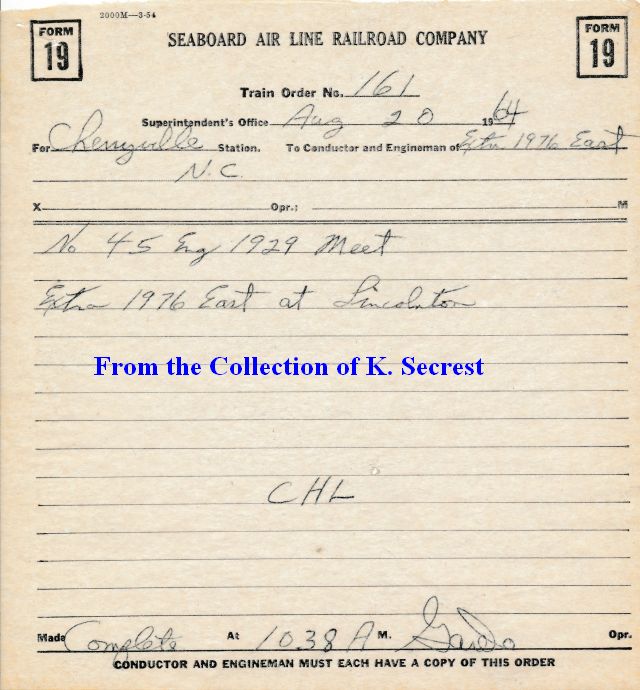 2000M—3-54
FORM 19
SEABOARD AIR LINE RAILROAD COMPANY
FORM 19
Train Order No. 161
Superintendent's Office Aug 20 1964
For Cherryville Station. To Conductor and Engineman of Extra 1976 East
N.C.
X Opr.; M
No 45 Eng 1929 Meet
Extra 1976 East at Lincolnton
From the Collection of K. Secrest
CHL
Made Complete At 1038 A M. Opr.
CONDUCTOR AND ENGINEMAN MUST EACH HAVE A COPY OF THIS ORDER